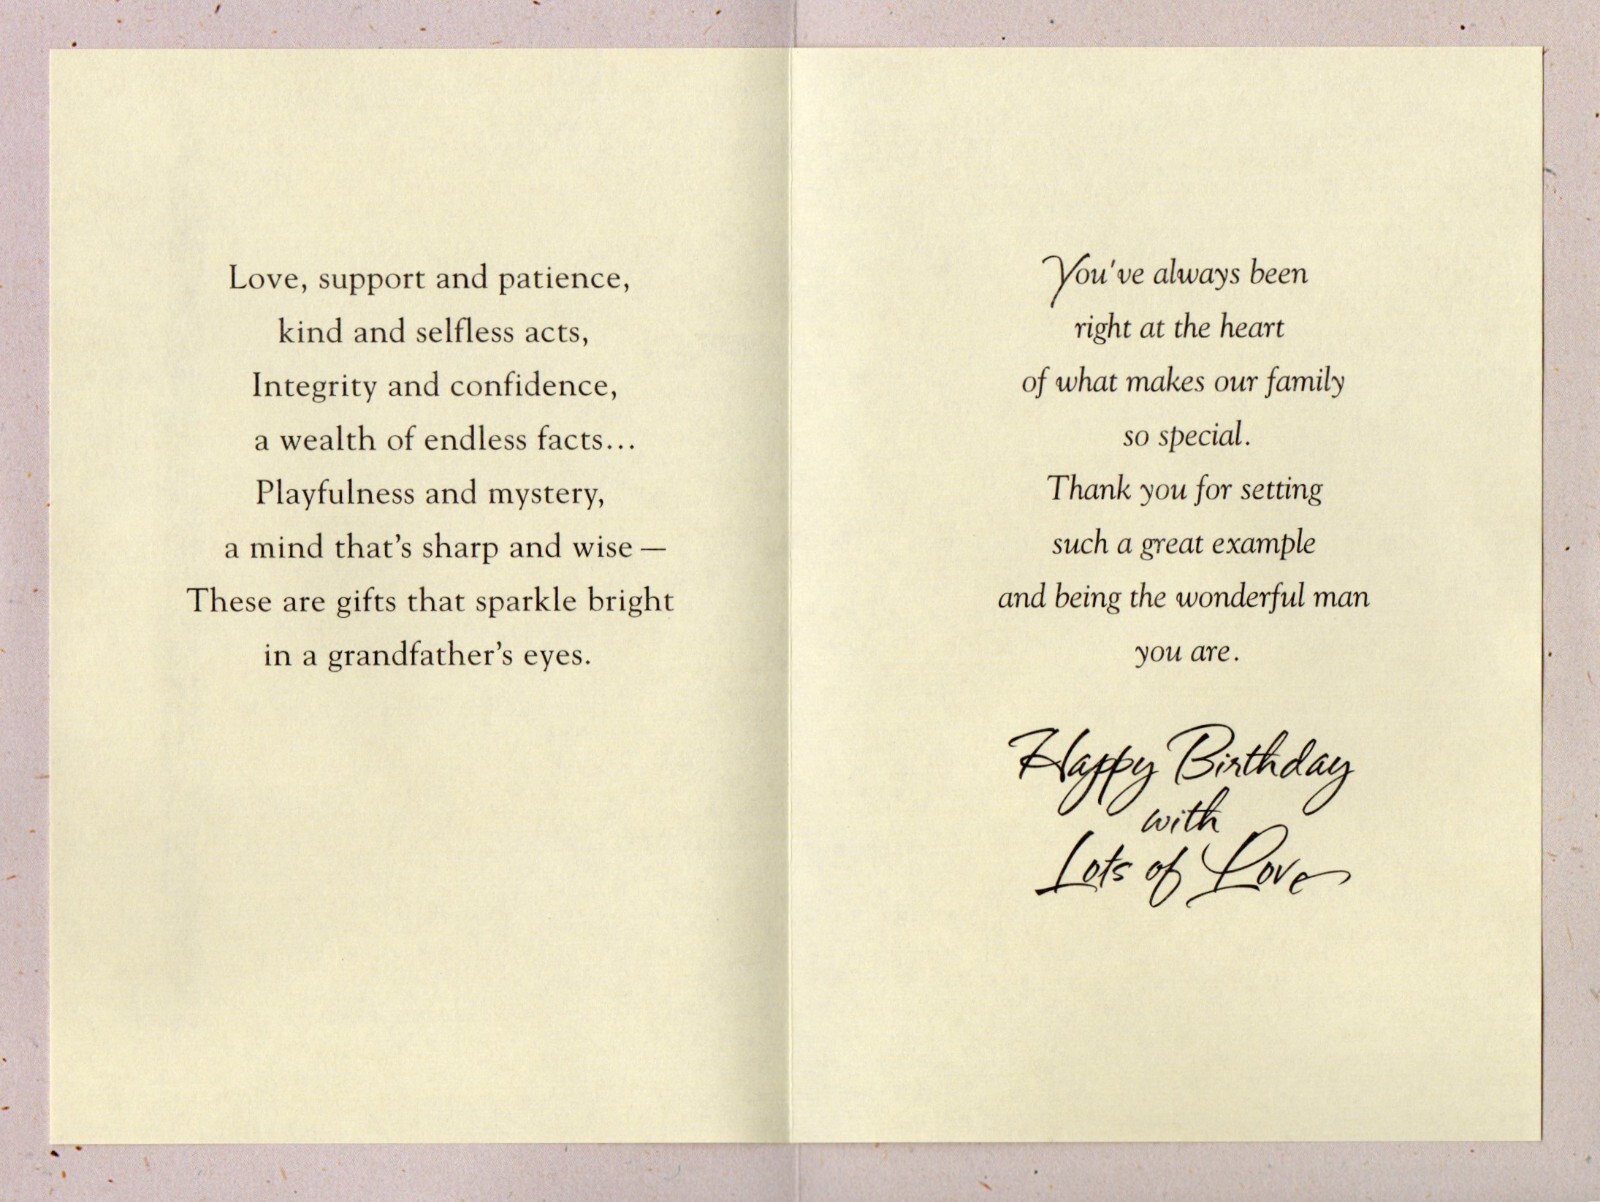 Love, support and patience,
kind and selfless acts,
Integrity and confidence,
a wealth of endless facts...
Playfulness and mystery,
a mind that's sharp and wise —
These are gifts that sparkle bright
in a grandfather's eyes.
You've always been
right at the heart
of what makes our family
so special.
Thank you for setting
such a great example
and being the wonderful man
you are.
Happy Birthday
with
Lots of Love